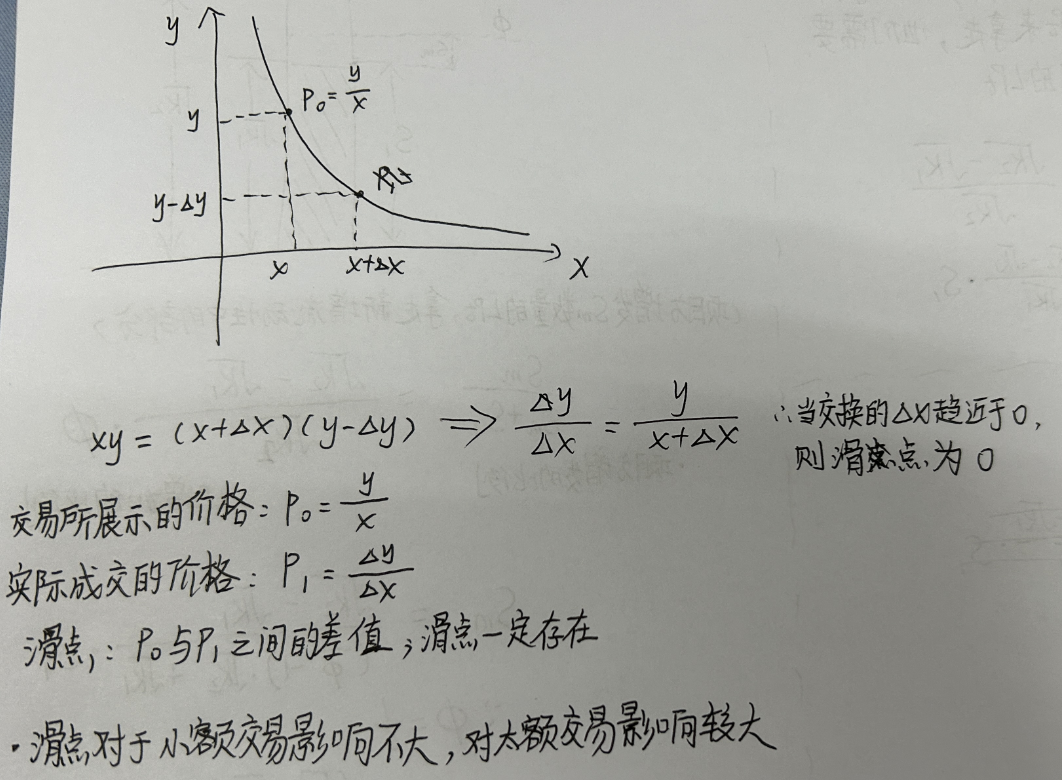 y
P₀=y/x
y
y-Δy
x
x+Δx
X
xy=(x+Δx)(y-Δy) ⟹ Δy/Δx = y/(x+Δx)
∴当交换的Δx趋近于0,
则滑点为0
交易所展示的价格: P₀=y/x
实际成交的价格: P₁=Δy/Δx
滑点,: P₀与P₁之间的差值,滑点一定存在
·滑点对于小额交易影响不大,对大额交易影响较大